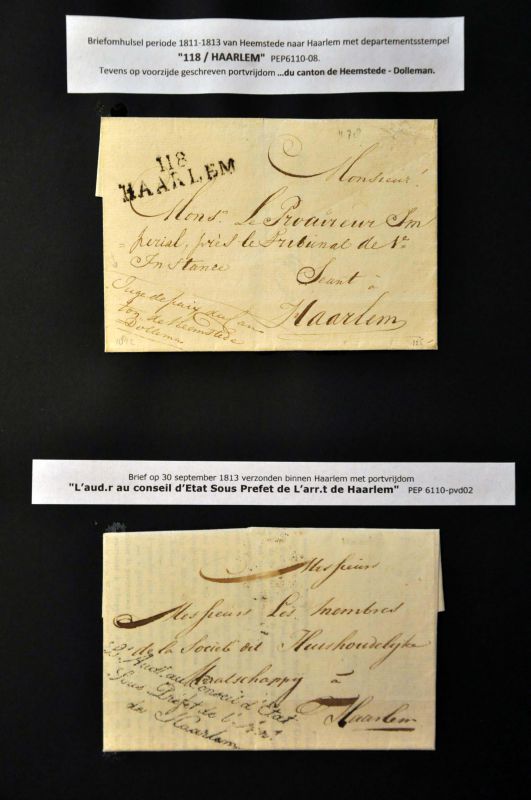 Briefomhulsel periode 1811-1813 van Heemstede naar Haarlem met departementsstempel
"118 / HAARLEM" PEP6110-08.
Tevens op voorzijde geschreven portvrijdom ...du canton de Heemstede - Dolleman.
118
HAARLEM
Monsieur!
Monsr. Le Procureur Im
=perial, près le Tribunal de 1re
Instance
Seant à
Haarlem
Juge de paix du can
ton de Heemstede
Dolleman
1812
125
Brief op 30 september 1813 verzonden binnen Haarlem met portvrijdom
"L'aud.r au conseil d'Etat Sous Prefet de L'arr.t de Haarlem" PEP 6110-pvd02
Messieurs
Messieurs Les membres
de la Societé dit Huishoudelijke
Maatschappy à
Haarlem
L'Audr. au Conseil d'Etat
Sous Préfet de l'Arrt.
de Haarlem